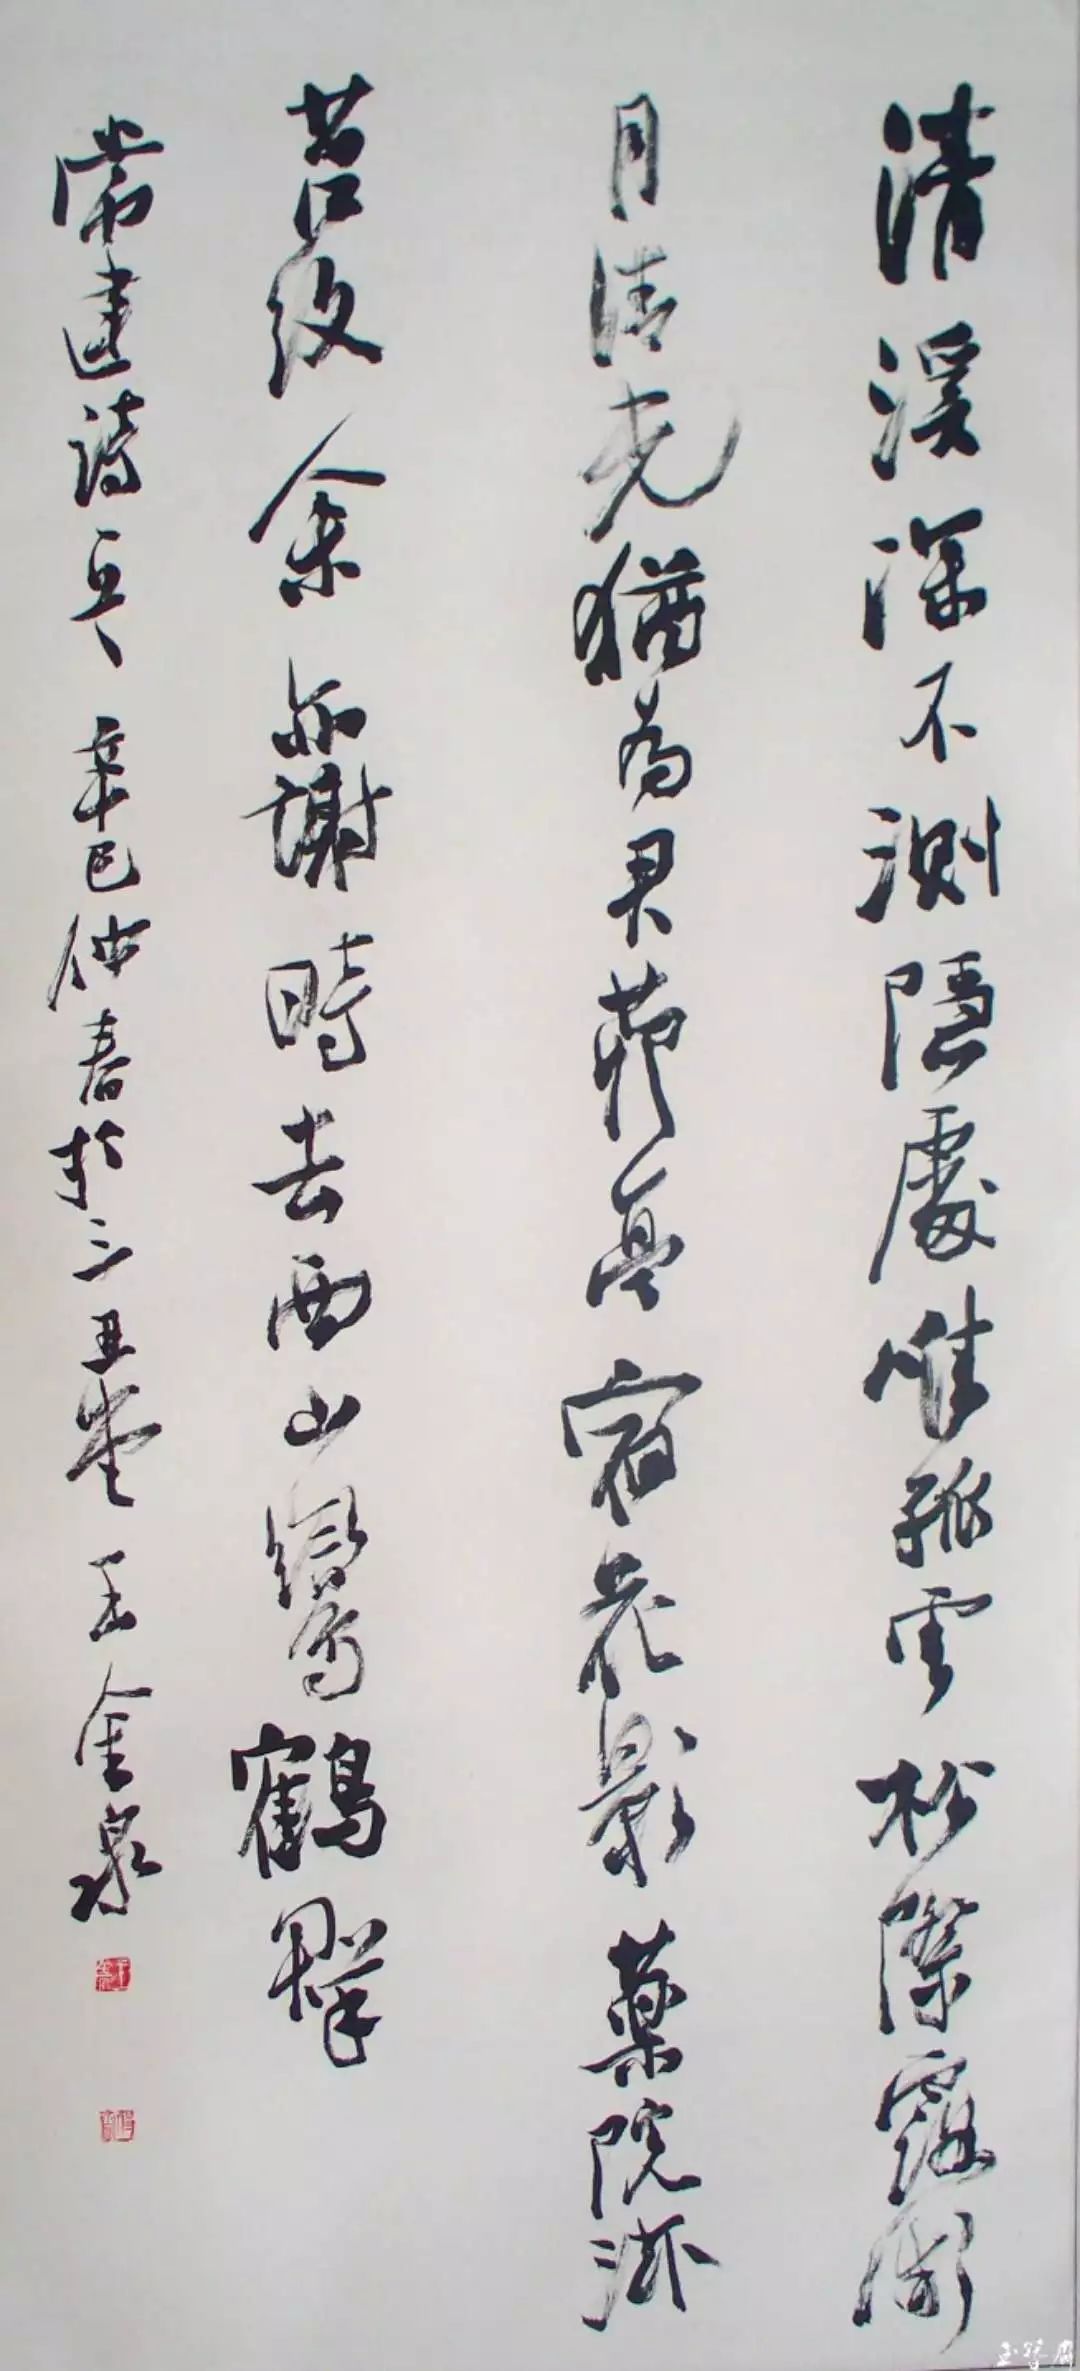 清溪深不測隱處唯孤雲松際露微
月清光猶為君茅亭宿花影藥院滋
苔紋余亦謝時去西山鸞鶴群
常建詩一首 辛巳仲春於三丑堂 王金泉